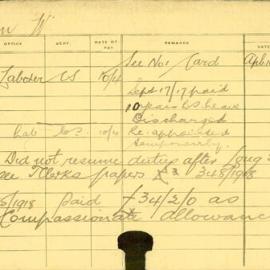 W
OFFICE DEPT. DATE OF PAY REMARKS DATE
Labourer CS 10/- See No 1 Card Apl 10
Sept 17/17 paid
10 years
Discharged
Lab. 10/- Re-appointed
temporarily.
Did not resume duties after Aug
see T Clerks papers 348/1918
5/1918 paid £34/2/0 as
Compassionate allowance